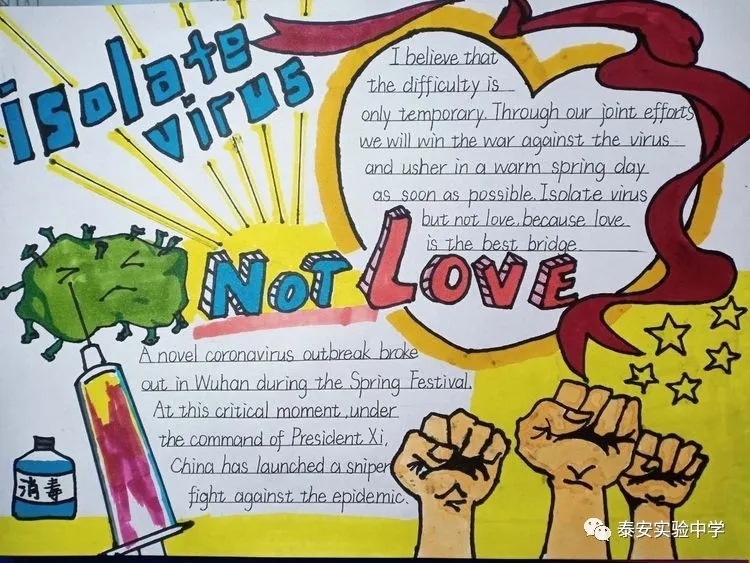 isolate
virus
I believe that
the difficulty is
only temporary. Through our joint efforts
we will win the war against the virus
and usher in a warm spring day
as soon as possible. Isolate virus
but not love. because love
is the best bridge.
NOT LOVE
A novel coronavirus outbreak broke
out in Wuhan during the Spring Festival.
At this critical moment, under
the command of President Xi,
China has launched a sniper
fight against the epidemic.
消毒
泰安实验中学